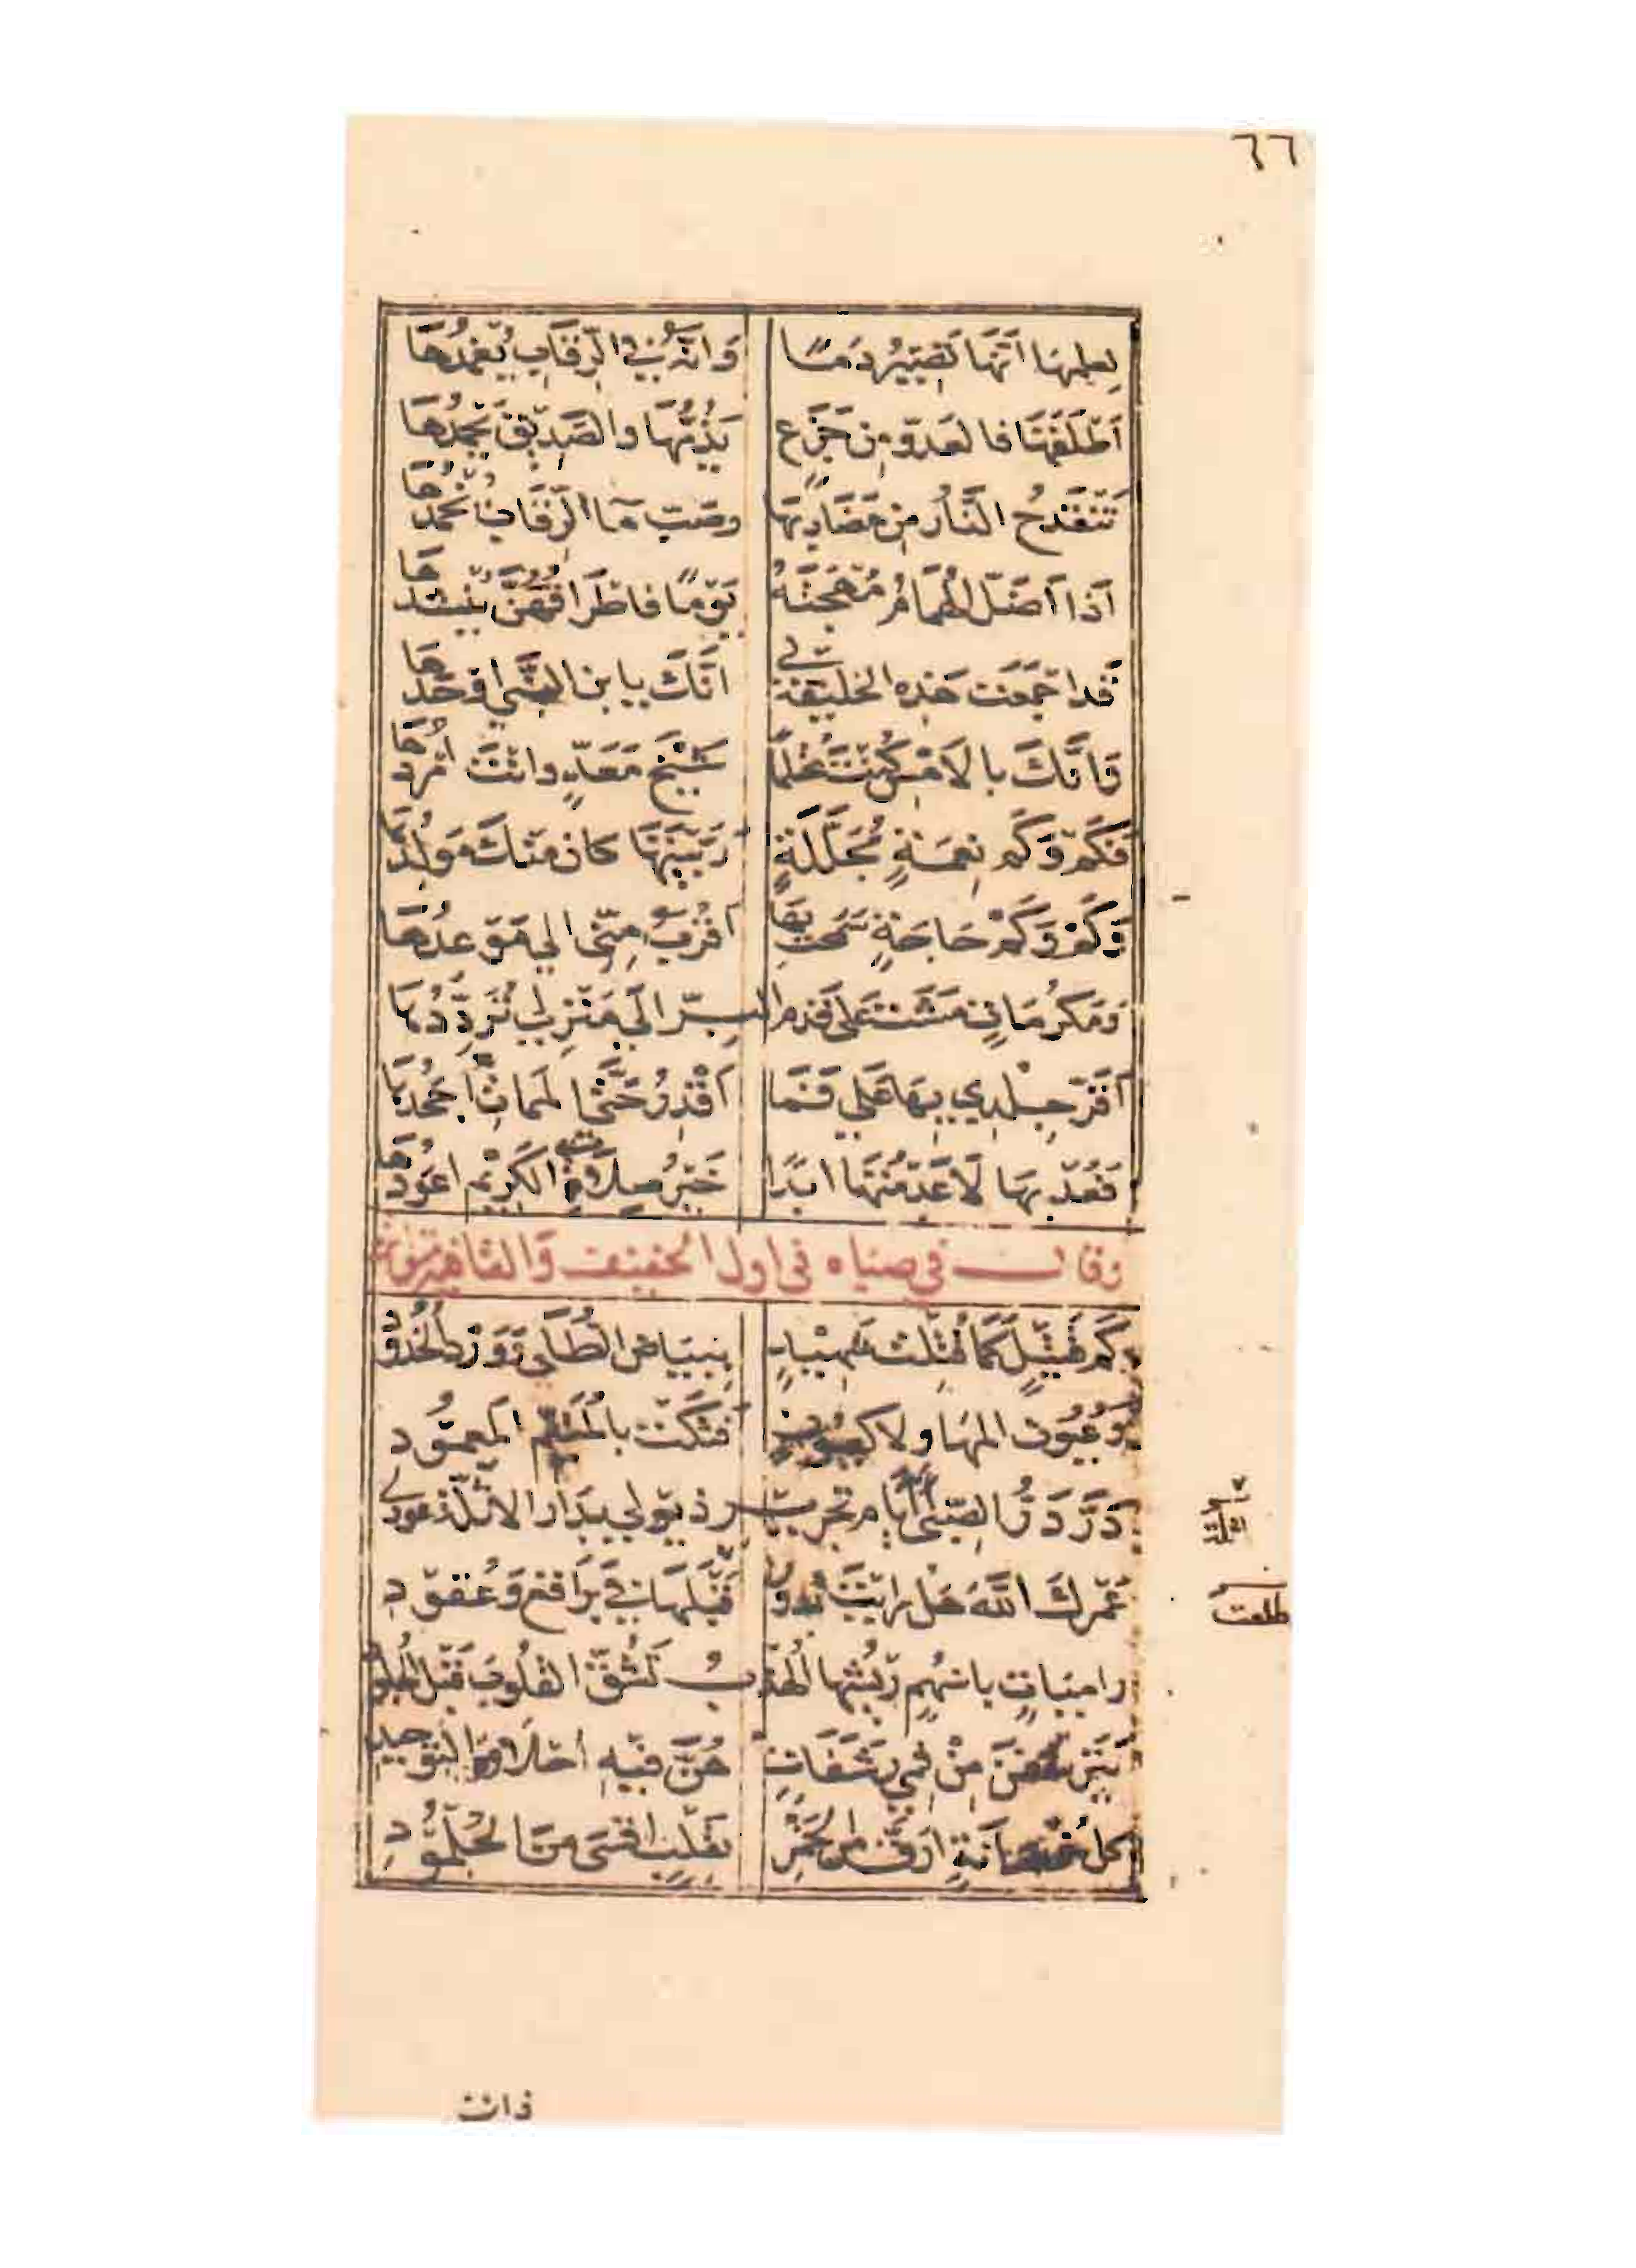 ٦٦
لِعِلمِهَا اَنَّهَا تَصِيْرُ دَمًا وَاَنَّهُ في الرِّقَابِ يُغمِدُهَا
اَطْلَقَهَا فالعَدوّ مِن جَزَع يَذُمُّهَا والصَّدِيْق يَحْمَدُهَا
تَنْقَدحُ النَّارُ مِن مَضَارِبِهَا وصَبّ مَآ الرّقَابِ يُخْمدُهَا
اذَا اَضَلّ الهُمَامُ مُهْجَتَهُ يَوْمًا فاطْرَافُهُنَّ يَنْشدهَا
قَد اجْمَعَت هَذِه الخَليْقَة لي اَنَّكَ يا بن النَّبي اوْحَدُهَا
وَانَّكَ بالاَمْسِ كُنْتَ مُحْتلِمًا شَيْخَ مَعَدٍّ وانْتَ امْرَدُهَا
فَكَمْ وَكَم نِعمَةٍ مُجَلَّلَةٍ رَبَّيْتَهَا كان مْنكَ مَولِدُهَا
وَكَمْ وَكَمْ حَاجَةٍ سَمَحْتَ بِهَا اَقْرَبُ مِنِّي الي مَوْعدُهَا
وَمَكرُمَاتٍ مَشَت عَلى قَدم البِرّ اِلَي مَنْزِلي تُرَدِّدُهَا
اَقَرّ جِلْدِي بِهَا عَلَي فَمَا اَقْدِرُ حَتَّي المَمات اَجْحَدُهَا
فَعُدْ بِهَا لَا عَدِمْتُهَا ابَدًا خَيْرُ صِلَاتِ الكَرِيْم اعْوَدُهَا
وقال في صباه في اول الخفيف والقافية متواتر
كَم قَتِيْلٍ كَمَا قُتِلت شَهِيْدٍ بِبيَاض الطُّلَى وَوَرْد الخُدُوْد
وَعُيُون المهَا ولا كعُيُونٍ فَتكَت بالمُتَيَّم المَعمُوْدِ
دَرَّ دَرُّ الصّبَى اَايَّام تجرير ذيوْلي بدَار الاثلَة عودي
عَمْركَ اللهَ هَل رايْتَ بُدورًا قَبْلَهَا في بَرَاقع وَعُقوْدِ
راميَاتٍ باسْهُمٍ رِيْشُهَا الهُدْبُ تَشُقّ القُلوْبَ قَبْل الجُلُودِ
يَتَرشَّفْنَ مِنْ فَمِي رَشَفَاتٍ هُنَّ فيْهِ احْلَى مِنَ التوْحِيدِ
كلُّ خُمْصَانَةٍ ارَقّ مِن الخَمْرِ بقَلْبٍ اقسَى مِنَ الجُلْمُوْدِ
اثلة
طلعت
ذات